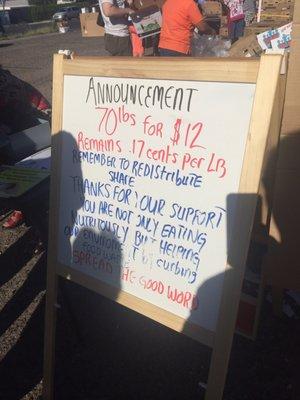 ANNOUNCEMENT
70lbs FOR $12
Remains .17 cents per LB
REMEMBER TO REDISTRIBUTE
SHARE
THANKS FOR YOUR SUPPORT
YOU ARE NOT ONLY EATING
NUTRITIOUSLY BUT HELPING
OUR ENVIRONMENT by curbing
FOOD WASTE
SPREAD THE GOOD WORD